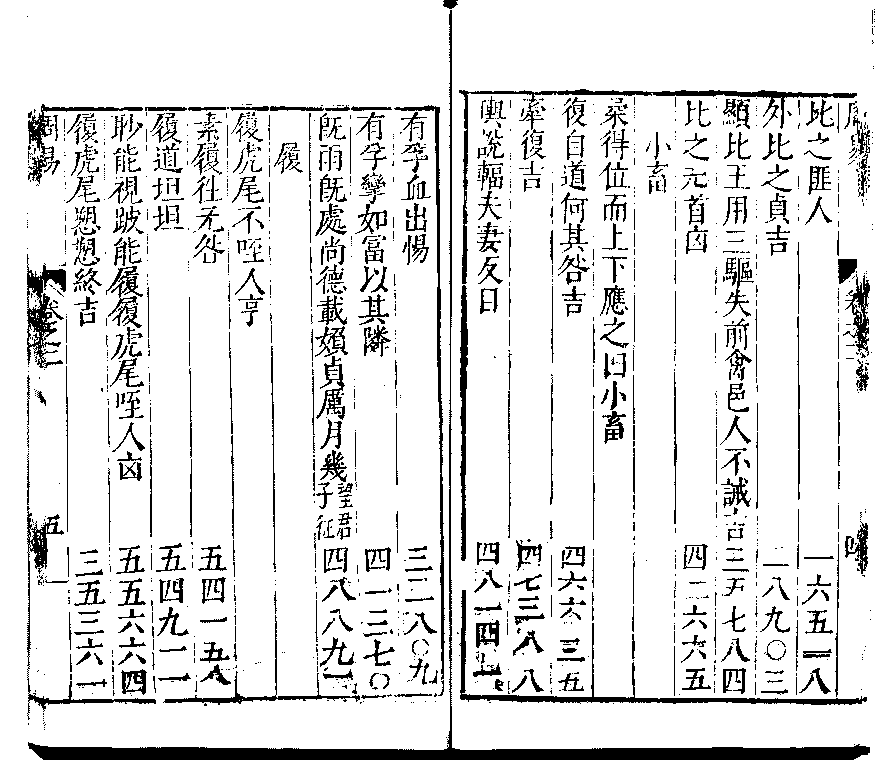 比之匪人 一六五一八
外比之貞吉 二八九〇三
顯比王用三驅失前禽邑人不誡吉 三五七八四
比之无首凶 四二六六五
小畜
柔得位而上下應之曰小畜
復自道何其咎吉 四六六三五
牽復吉 四七三八八
輿說輻夫妻反目 四八一四
有孚血出惕 三二八〇九
有孚攣如富以其隣 四一三七〇
旣雨旣處尚德載婦貞厲月幾望君子征 四八八九一
履
履虎尾不咥人亨
素履徃无咎 五四一五八
履道坦坦 五四九一一
眇能視跛能履履虎尾咥人凶 五五六六四
履虎尾愬愬終吉 三五三六一
周易 卷之三 五